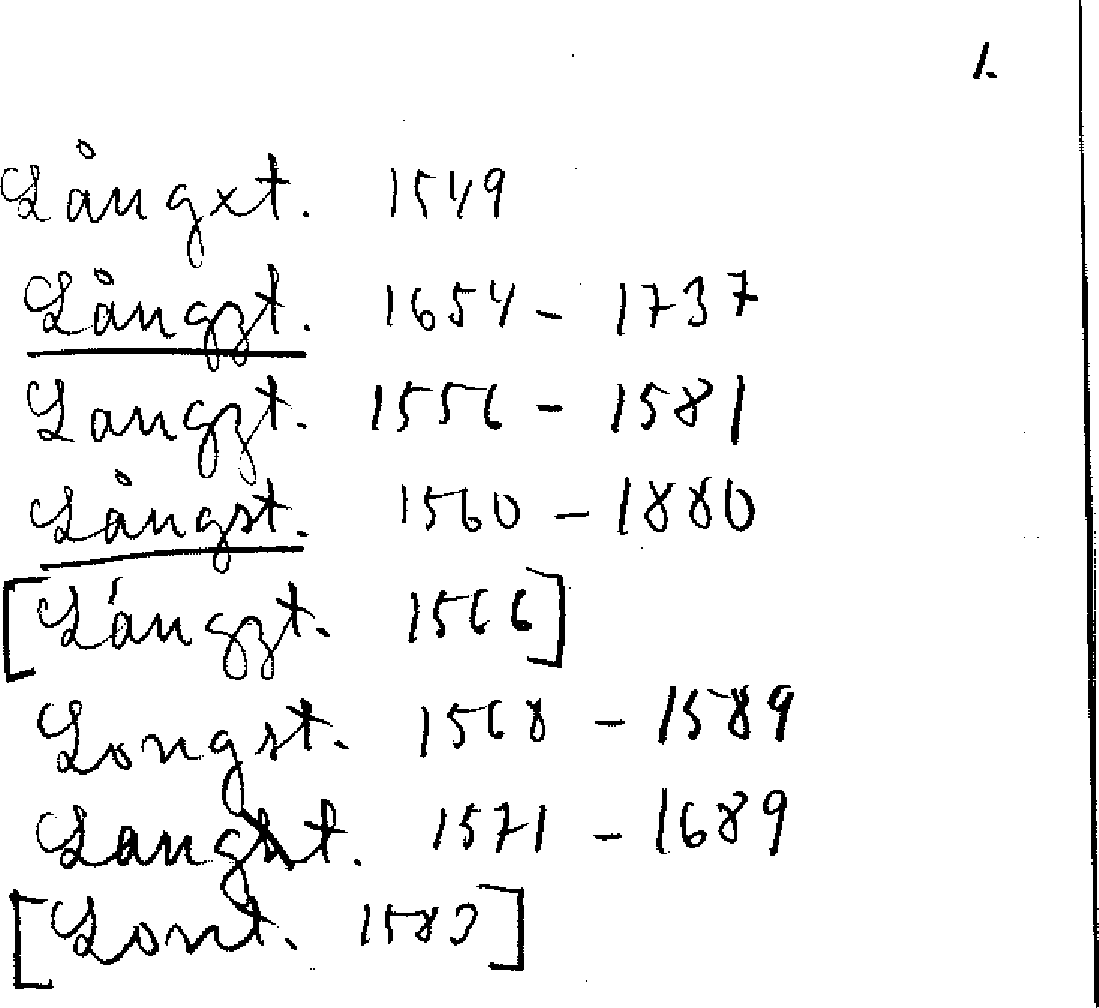 1.
Långxt. 1549
Långzt. 1654 - 1737
Langzt. 1556 - 1581
Långst. 1560 - 1880
[Lángzt. 1566]
Longst. 1568 - 1589
Langst. 1571 - 1689
[Lonst. 1583]